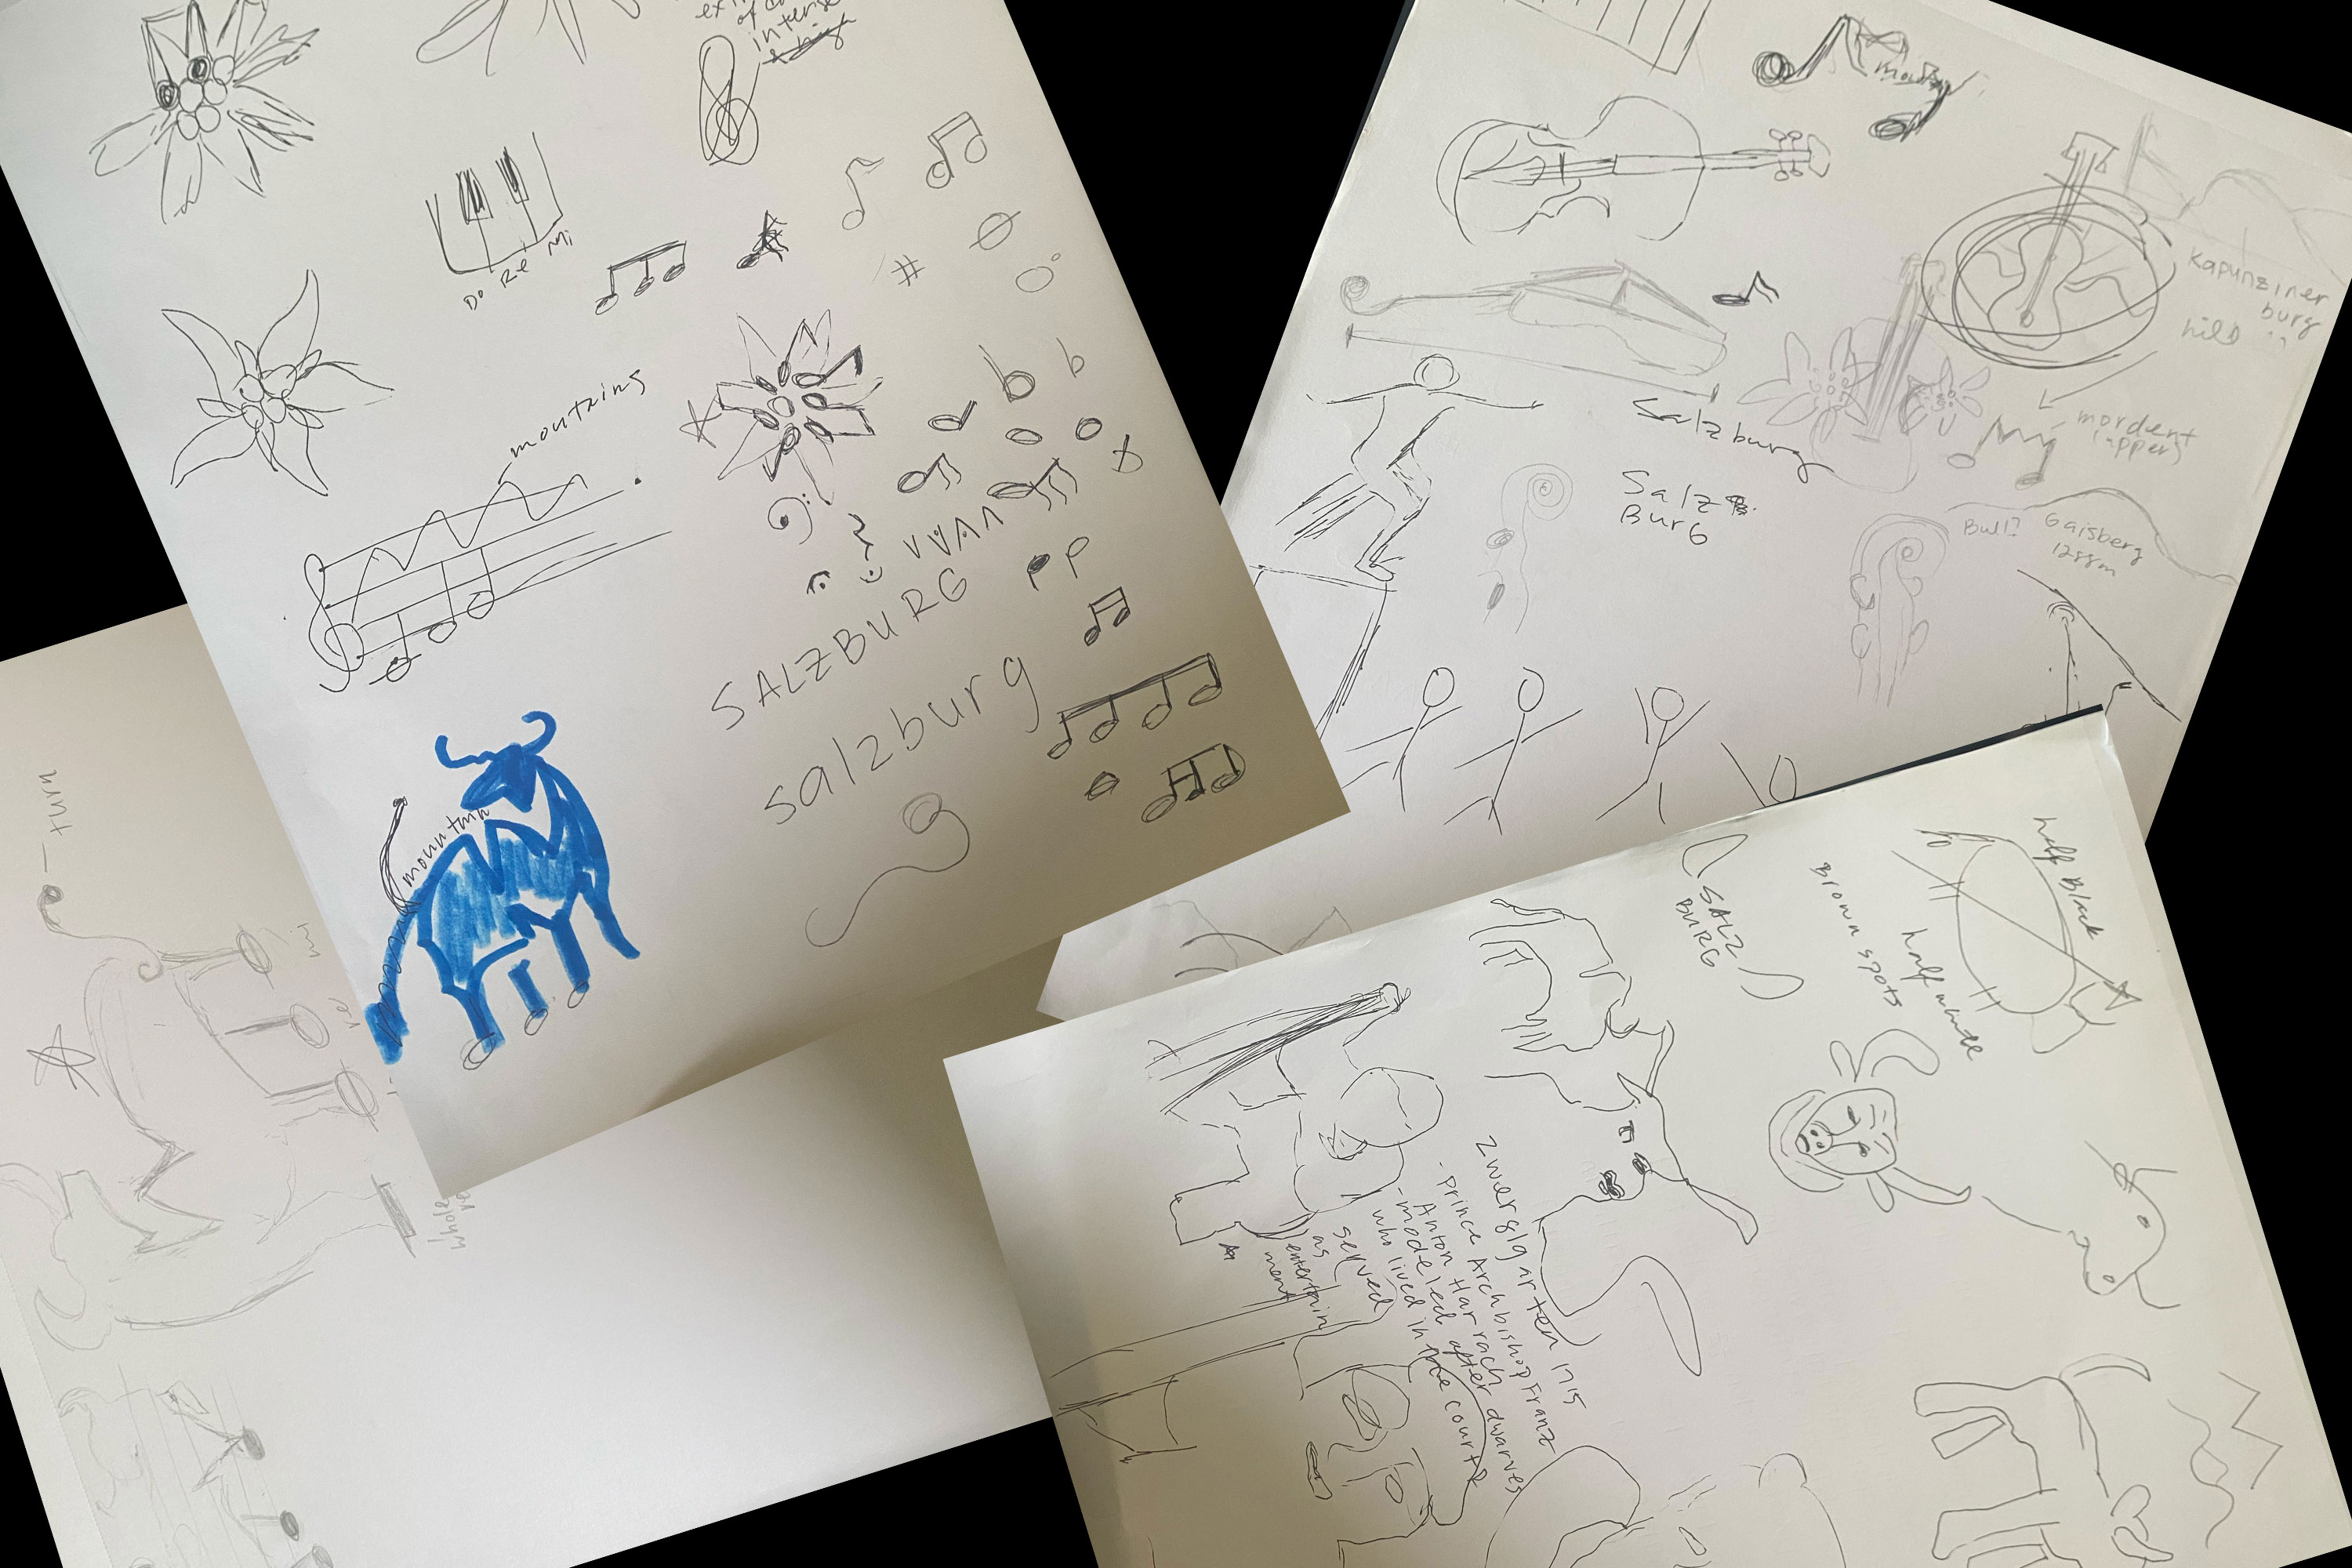 of
intense
Do Re Mi
mountains
SALZBURG
salzburg
g
mountain
mountain
Kapunziner
burg
hill
mordent
(upper)
Salzburg
Salz
BurG
Bull? Gaisberg
1288m
turn
mi
re
whole
half Black
half white
Brown spots
SALZ
BURG
Zwerglgarten 1715
- Prince Archbishop Franz
Anton Harrach
- modeled after dwarves
who lived in the court &
served
as
entertain
ment